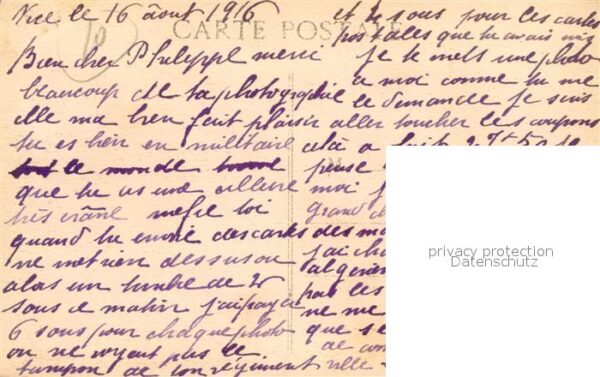 Vic le 16 août 1916
CARTE POSTALE
Bien cher Philippe merci
beaucoup de ta photographie
elle ma bien fait plaisir
tu es bien en militaire
le monde
que tu as une allure
très crâne mefie toi
quand tu envoie des cartes
ne met rien dessus ou
alos un timbre de
sous ce matin j'ai payer
6 sous pour chaque photo
on ne voyant pas le
tampon de ton régiment
et 2 sous pour les cartes
postales que tu avais mis
je te mets une photo
a moi comme tu me
le demande je suis
aller toucher les coupons
celà a fait
pense
moi
grand
des
j'ai
algerien
pas les
ne me
que
de
ville
privacy protection
Datenschutz